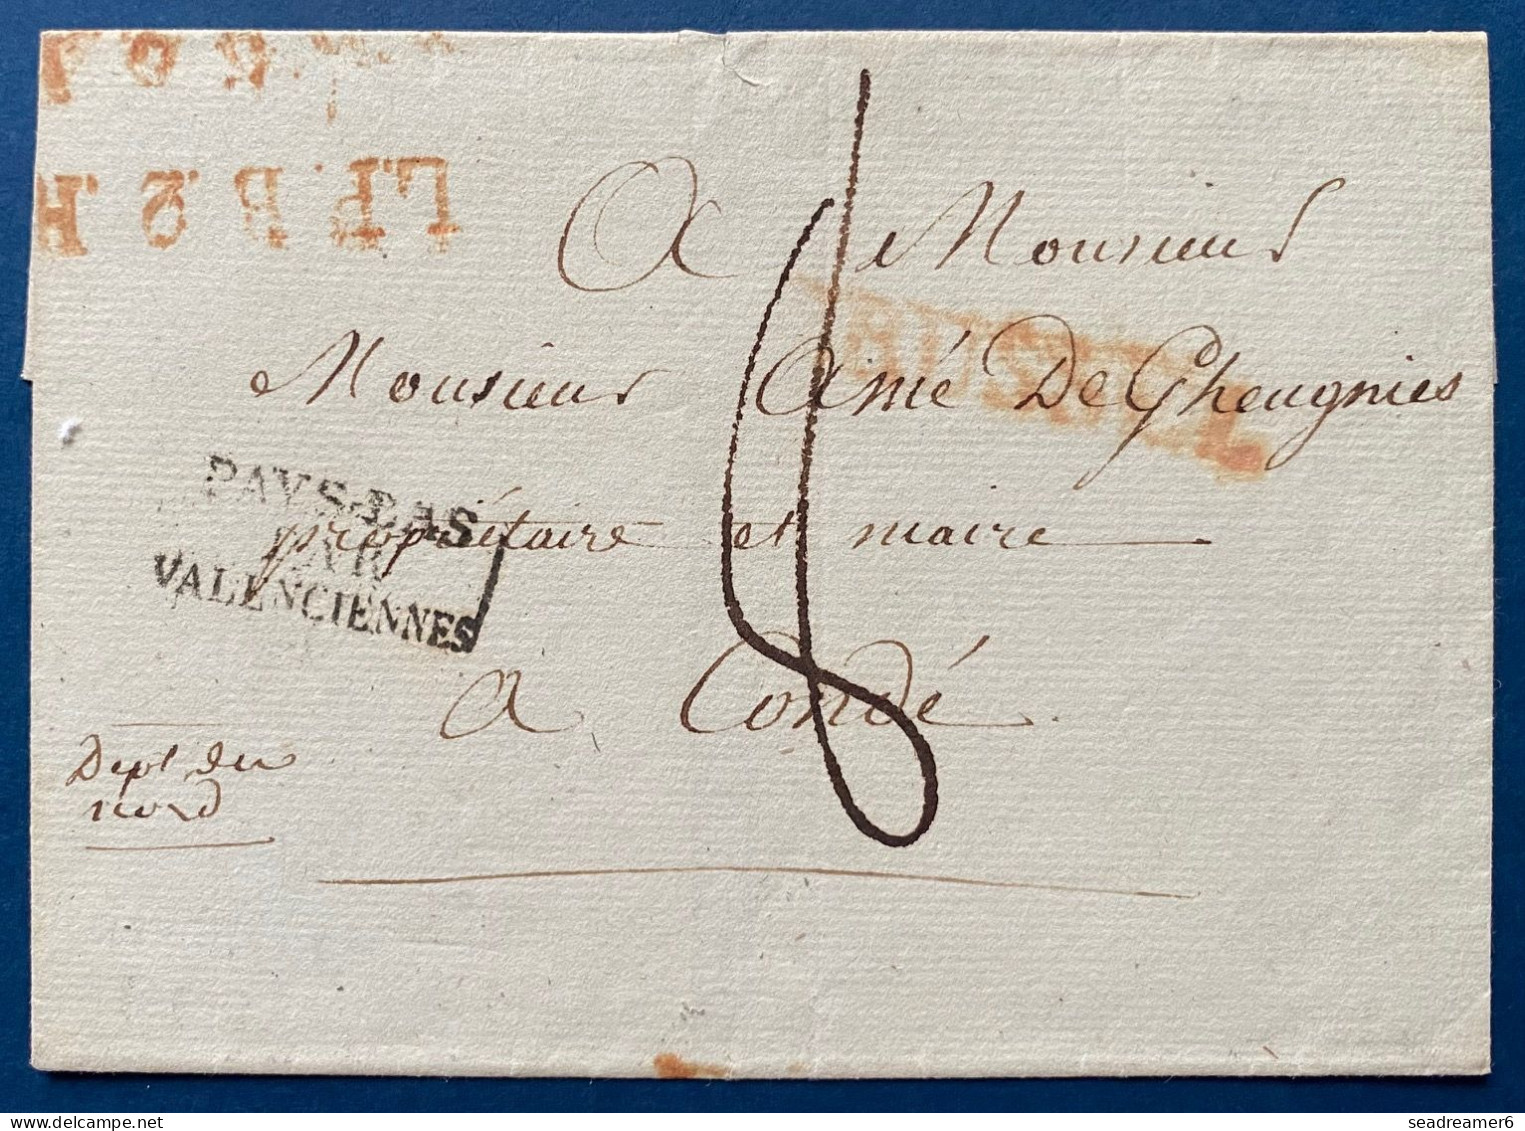 L.P.B.2.R
A Monsieur
Monsieur Aimé De Gheugnies
PAYS-BAS
PAR
VALENCIENNES
propriétaire et maire
a Condé
8
Dept du
nord
seadreamer6